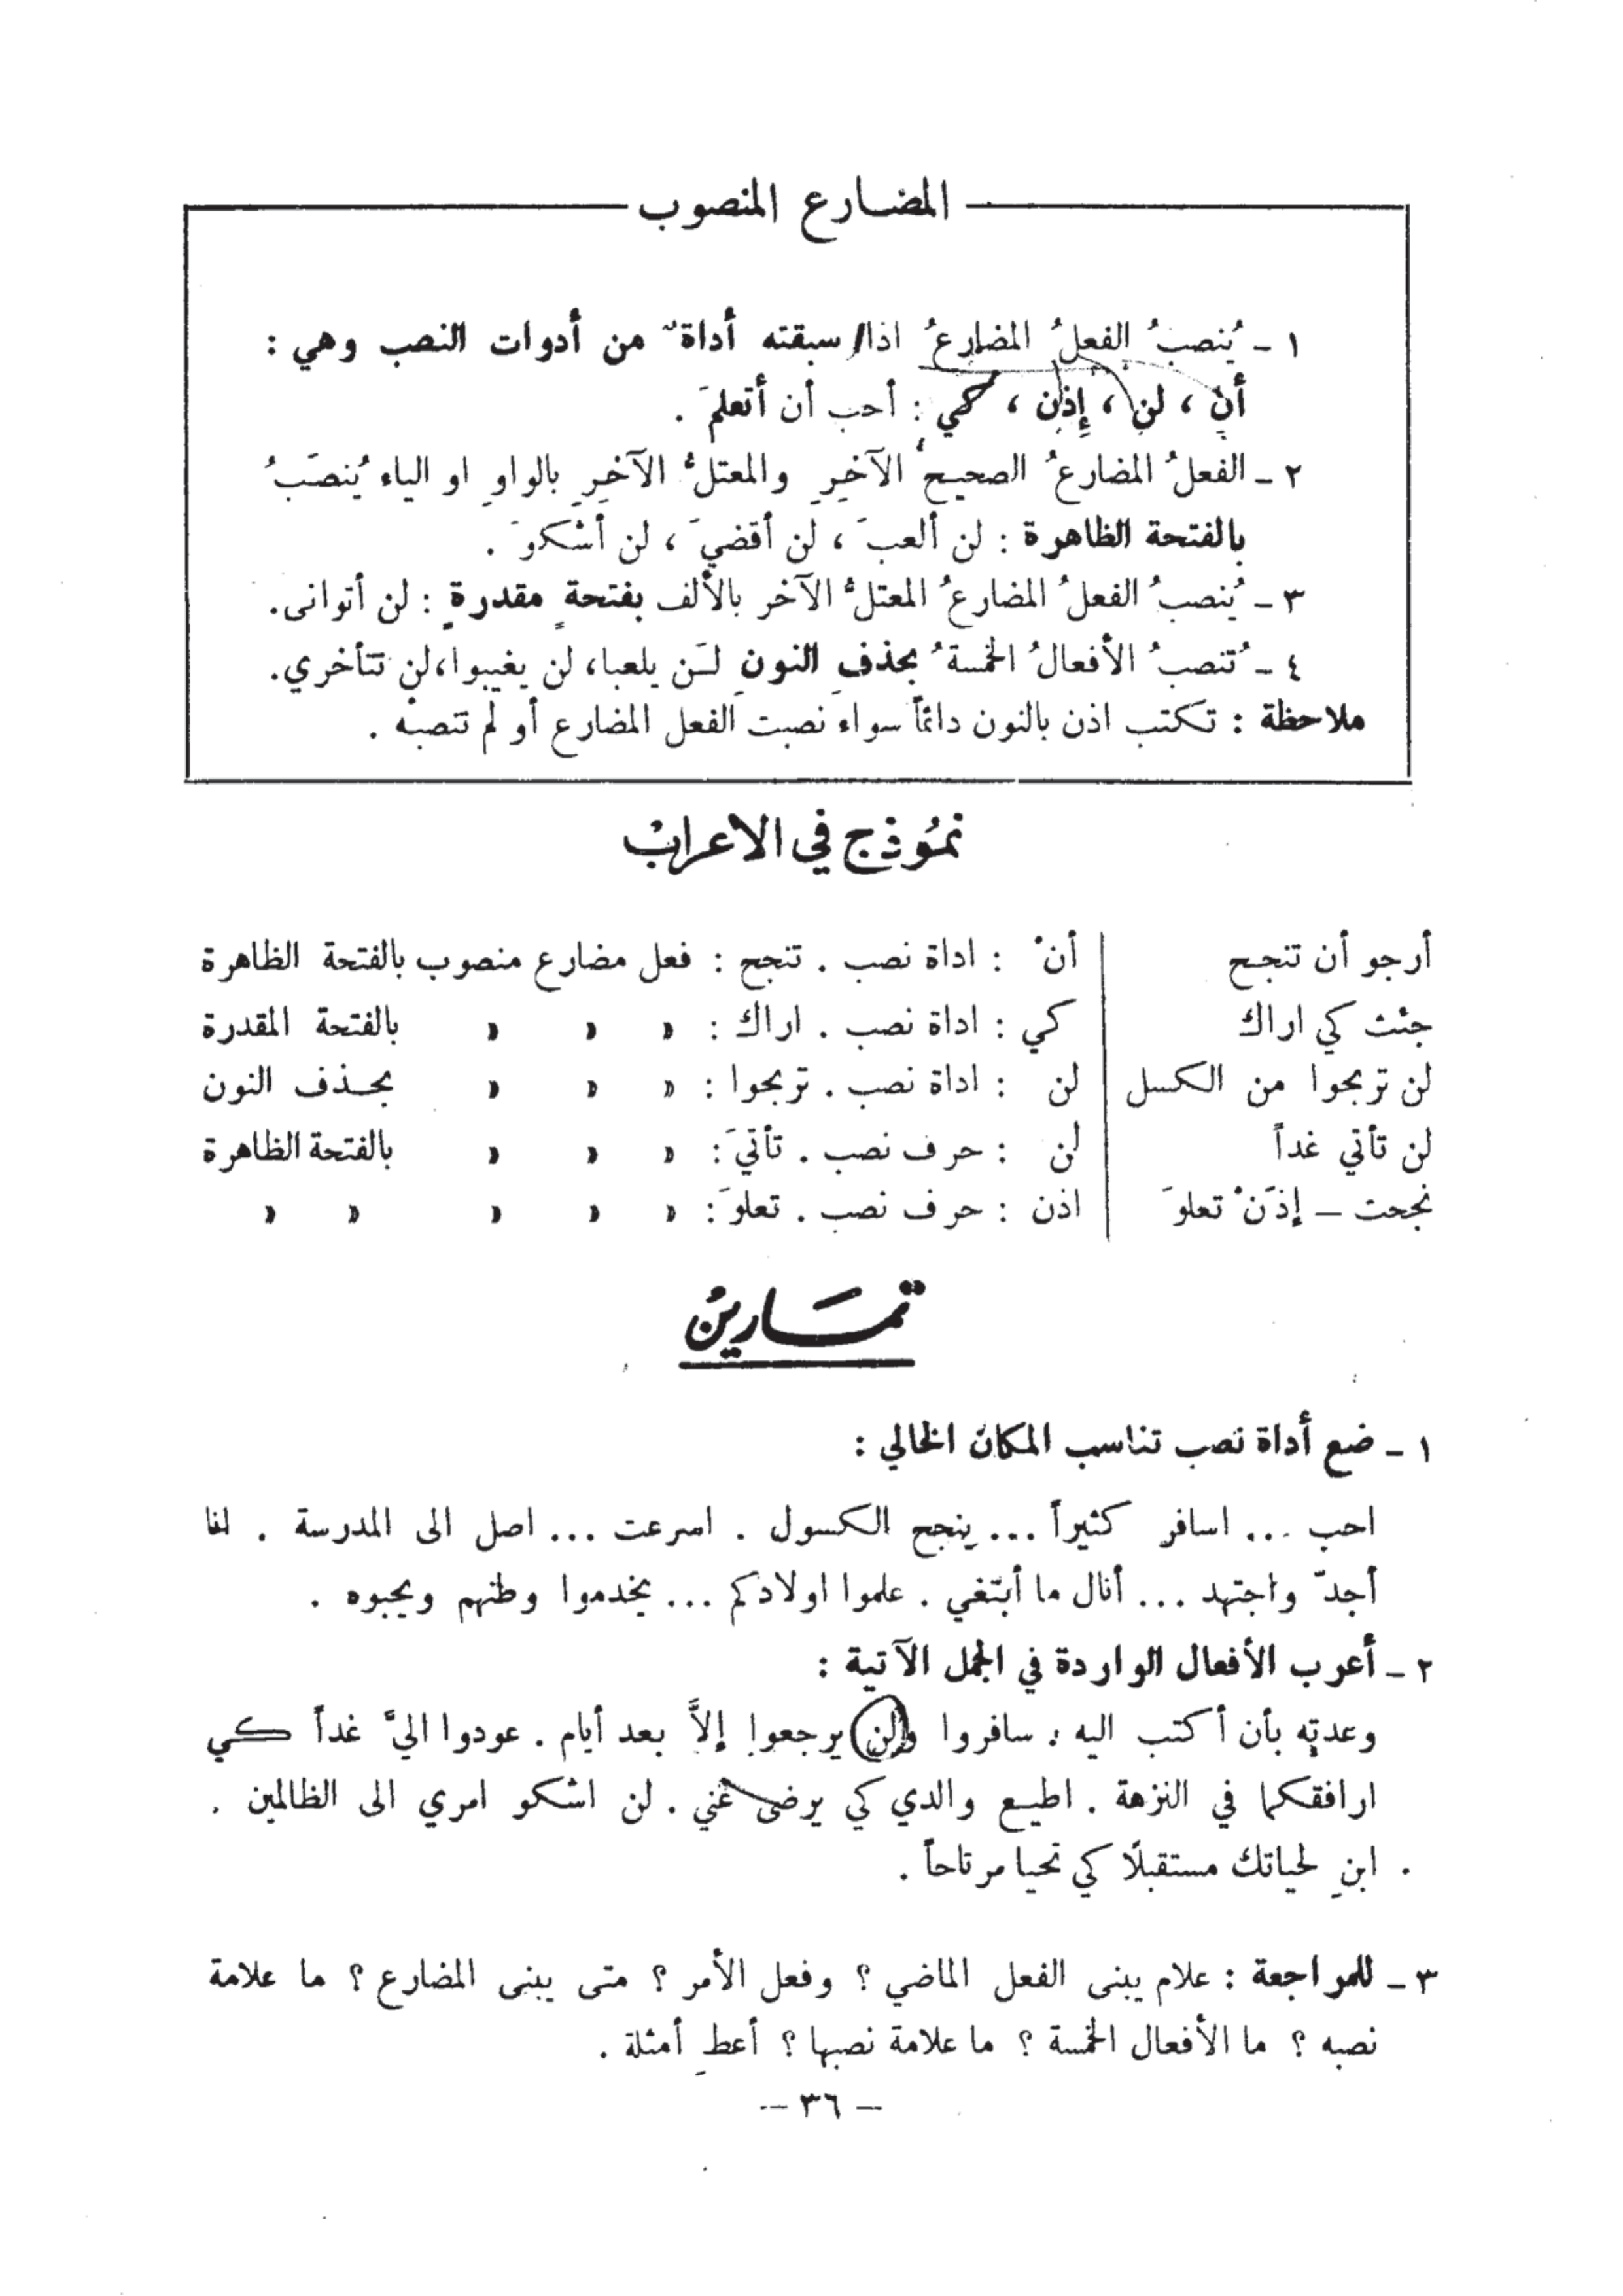 المضارع المنصوب
١ - يُنصبُ الفعلُ المضارعُ اذا سبقته أداةٌ من أدوات النصب وهي :
أن ، لن ، إذن ، كي : أحب أن أتعلمَ .
٢ - الفعلُ المضارعُ الصحيحُ الآخرِ والمعتلُّ الآخرِ بالواوِ او الياء يُنصَبُ
بالفتحة الظاهرة : لن ألعبَ ، لن أقضيَ ، لن أشكوَ .
٣ - يُنصبُ الفعلُ المضارعُ المعتلُّ الآخر بالألف بفتحةٍ مقدرةٍ : لن أتوانى .
٤ - تُنصبُ الأفعالُ الخمسةُ بحذفِ النونِ لـَن يلعبا، لن يغيبوا، لن تتأخري .
ملاحظة : تكتب اذن بالنون دائماً سواء نصبت الفعل المضارع أو لم تنصبْه .
نمُوذج في الاعرابْ
أرجو أن تنجح | أنْ : اداة نصب . تنجح : فعل مضارع منصوب بالفتحة الظاهرة
جئت كي اراك | كي : اداة نصب . اراك : » » » بالفتحة المقدرة
لن تربحوا من الكسل | لن : اداة نصب . تربحوا : » » » بحـذف النون
لن تأتي غداً | لن : حرف نصب . تأتيَ : » » » بالفتحة الظاهرة
نجحت – إذَنْ تعلوَ | اذن : حرف نصب . تعلوَ : » » » » »
تمَـارينُ
١ - ضع أداة نصب تناسب المكان الخالي :
احب ... اسافر كثيراً ... ينجح الكسول . اسرعت ... اصل الى المدرسة . انما
أجدّ واجتهد ... أنال ما أبتغي . علموا اولادكم ... يخدموا وطنهم ويحبوه .
٢ - أعرب الأفعال الواردة في الجمل الآتية :
وعدتِه بأن أكتب اليه . سافروا ولن يرجعوا إلاَّ بعد أيام . عودوا اليَّ غداً كـي
ارافقكما في النزهة . اطيـع والدي كي يرضى عني . لن اشكو امري الى الظالمين .
ابنِ لحياتك مستقبلًا كي تحيا مرتاحاً .
٣ - للمراجعة : علام يبنى الفعل الماضي ؟ وفعل الأمر ؟ متى يبنى المضارع ؟ ما علامة
نصبه ؟ ما الأفعال الخمسة ؟ ما علامة نصبها ؟ أعطِ أمثلة .
– ٣٦ –